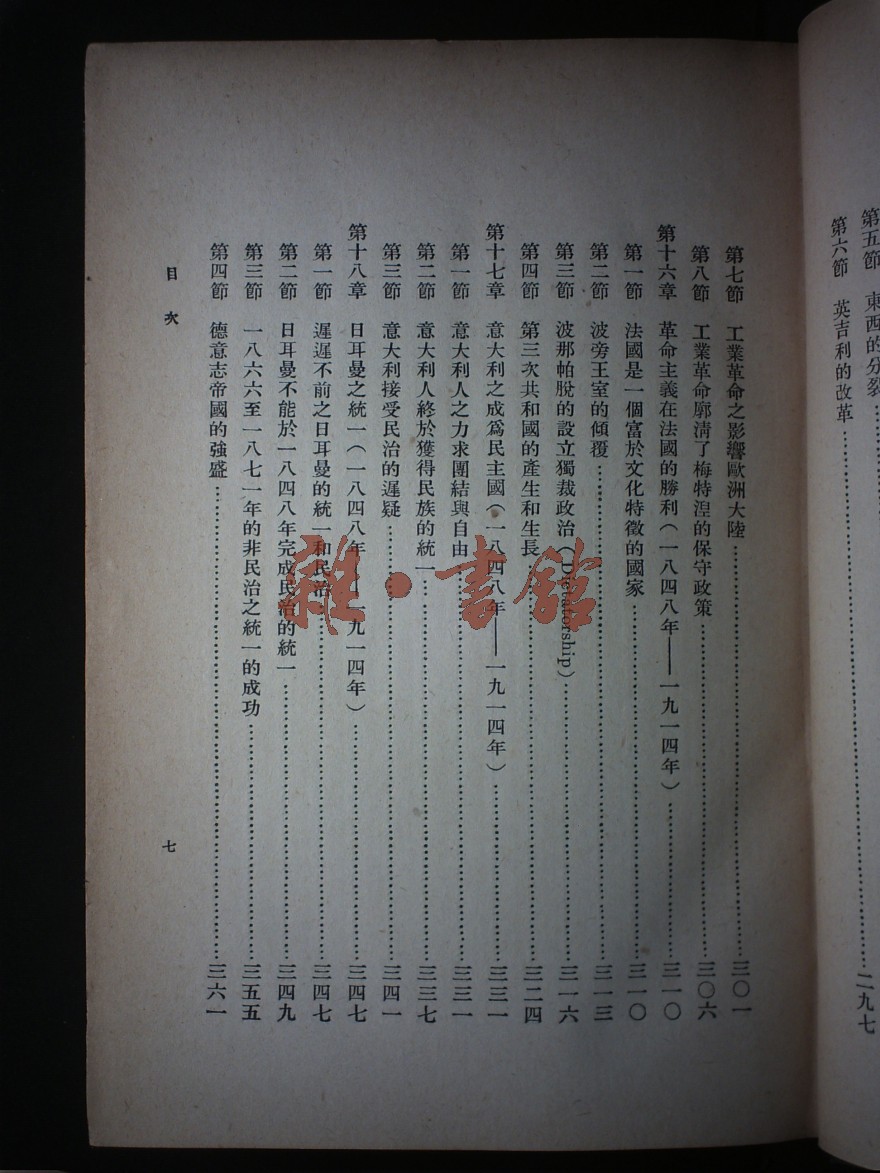 第五節 東西的分裂
第六節 英吉利的改革………………二九七
第七節 工業革命之影響歐洲大陸………………三〇一
第八節 工業革命廓淸了梅特涅的保守政策………………三〇六
第十六章 革命主義在法國的勝利(一八四八年——一九一四年)………………三一〇
第一節 法國是一個富於文化特徵的國家………………三一〇
第二節 波旁王室的傾覆………………三一三
第三節 波那帕脫的設立獨裁政治(Dictatorship)………………三一六
第四節 第三次共和國的產生和生長………………三二四
第十七章 意大利之成爲民主國(一八四八年——一九一四年)………………三三一
第一節 意大利人之力求團結與自由………………三三一
第二節 意大利人終於獲得民族的統一………………三三七
第三節 意大利接受民治的遲疑………………三四一
第十八章 日耳曼之統一(一八四八年——一九一四年)………………三四七
第一節 遲遲不前之日耳曼的統一和民治………………三四七
第二節 日耳曼不能於一八四八年完成民治的統一………………三四九
第三節 一八六六至一八七一年的非民治之統一的成功………………三五五
第四節 德意志帝國的強盛………………三六一
目次 七
雜·書館